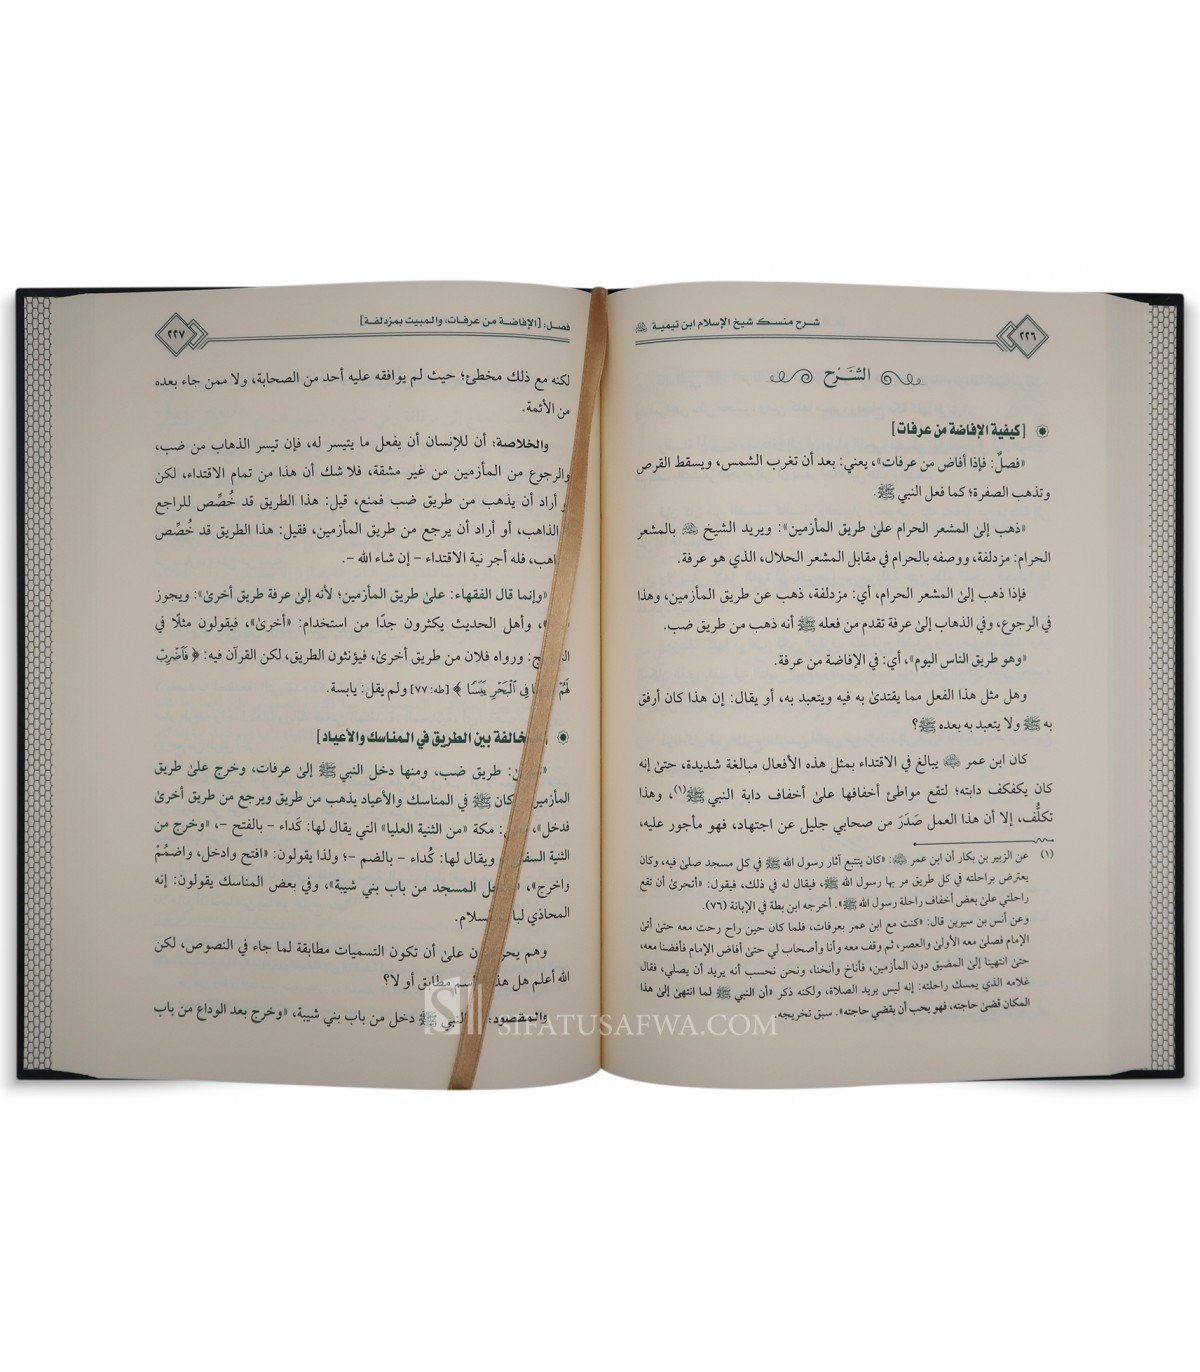 شرح منسك شيخ الإسلام ابن تيمية
٢٢٦
الشَّرْح
[كيفية الإفاضة من عرفات]
«فصلٌ: فإذا أفاض من عرفات»، يعني: بعد أن تغرب الشمس، ويسقط القرص
وتذهب الصفرة؛ كما فعل النبي ﷺ.
«ذهب إلىٰ المشعر الحرام علىٰ طريق المأزمين»: ويريد الشيخ بالمشعر
الحرام: مزدلفة، ووصفه بالحرام في مقابل المشعر الحلال، الذي هو عرفة.
فإذا ذهب إلىٰ المشعر الحرام، أي: مزدلفة، ذهب عن طريق المأزمين، وهذا
في الرجوع، وفي الذهاب إلىٰ عرفة تقدم من فعله ﷺ أنه ذهب من طريق ضب.
«وهو طريق الناس اليوم»، أي: في الإفاضة من عرفة.
وهل مثل هذا الفعل مما يقتدىٰ به فيه ويتعبد به، أو يقال: إن هذا كان أرفق
به ﷺ ولا يتعبد به بعده ﷺ؟
كان ابن عمر يبالغ في الاقتداء بمثل هذه الأفعال مبالغة شديدة، حتىٰ إنه
كان يكفكف دابته؛ لتقع مواطئ أخفافها علىٰ أخفاف دابة النبي ﷺ(١)، وهذا
تكلُّف، إلا أن هذا العمل صَدَرَ من صحابي جليل عن اجتهاد، فهو مأجور عليه،
(١) عن الزبير بن بكار أن ابن عمر: «كان يتتبع آثار رسول الله ﷺ في كل مسجد صلىٰ فيه، وكان
يعترض براحلته في كل طريق مر بها رسول الله ﷺ، فيقال له في ذلك، فيقول: «أتحرىٰ أن تقع
راحلتي علىٰ بعض أخفاف راحلة رسول الله ﷺ». أخرجه ابن بطة في الإبانة (٧٦).
وعن أنس بن سيرين قال: «كنت مع ابن عمر بعرفات، فلما كان حين راح رحت معه حتىٰ أتىٰ
الإمام فصلىٰ معه الأولىٰ والعصر، ثم وقف معه وأنا وأصحاب لي حتىٰ أفاض الإمام فأفضنا معه،
حتىٰ انتهينا إلىٰ المضيق دون المأزمين، فأناخ وأنخنا، ونحن نحسب أنه يريد أن يصلي، فقال
غلامه الذي يمسك راحلته: إنه ليس يريد الصلاة، ولكنه ذكر «أن النبي ﷺ لما انتهىٰ إلىٰ هذا
المكان قضىٰ حاجته، فهو يحب أن يقضي حاجته». سبق تخريجه.
فصل: [الإفاضة من عرفات، والمبيت بمزدلفة]
٢٢٧
لكنه مع ذلك مخطئ؛ حيث لم يوافقه عليه أحد من الصحابة، ولا ممن جاء بعده
من الأئمة.
والخلاصة: أن للإنسان أن يفعل ما يتيسر له، فإن تيسر الذهاب من ضب،
والرجوع من المأزمين من غير مشقة، فلا شك أن هذا من تمام الاقتداء، لكن
أراد أن يذهب من طريق ضب فمنع، قيل: هذا الطريق قد خُصِّص للراجع
الذاهب، أو أراد أن يرجع من طريق المأزمين، فقيل: هذا الطريق قد خُصِّص
فله أجر نية الاقتداء - إن شاء الله -.
«وإنما قال الفقهاء: علىٰ طريق المأزمين؛ لأنه إلىٰ عرفة طريق أخرىٰ»: ويجوز
وأهل الحديث يكثرون جدًا من استخدام: «أخرىٰ»، فيقولون مثلًا في
ورواه فلان من طريق أخرىٰ، فيؤنثون الطريق، لكن القرآن فيه: ﴿فَٱضْرِبْ
لَهُمْ فِي ٱلْبَحْرِ يَبَسًا﴾ [طه: ٧٧] ولم يقل: يابسة.
بين الطريق في المناسك والأعياد]
طريق ضب، ومنها دخل النبي ﷺ إلىٰ عرفات، وخرج علىٰ طريق
المأزمين كان ﷺ في المناسك والأعياد يذهب من طريق ويرجع من طريق أخرىٰ
فدخل»، مكة «من الثنية العليا» التي يقال لها: كَداء - بالفتح -، «وخرج من
الثنية ويقال لها: كُداء - بالضم -؛ ولذا يقولون: «افتح وادخل، واضمُمْ
واخرج»، المسجد من باب بني شيبة»، وفي بعض المناسك يقولون: إنه
المحاذي السلام.
وهم علىٰ أن تكون التسميات مطابقة لما جاء في النصوص، لكن
الله أعلم هل مطابق أو لا؟
والمقصود: النبي ﷺ دخل من باب بني شيبة، «وخرج بعد الوداع من باب
SIFATUSAFWA.COM